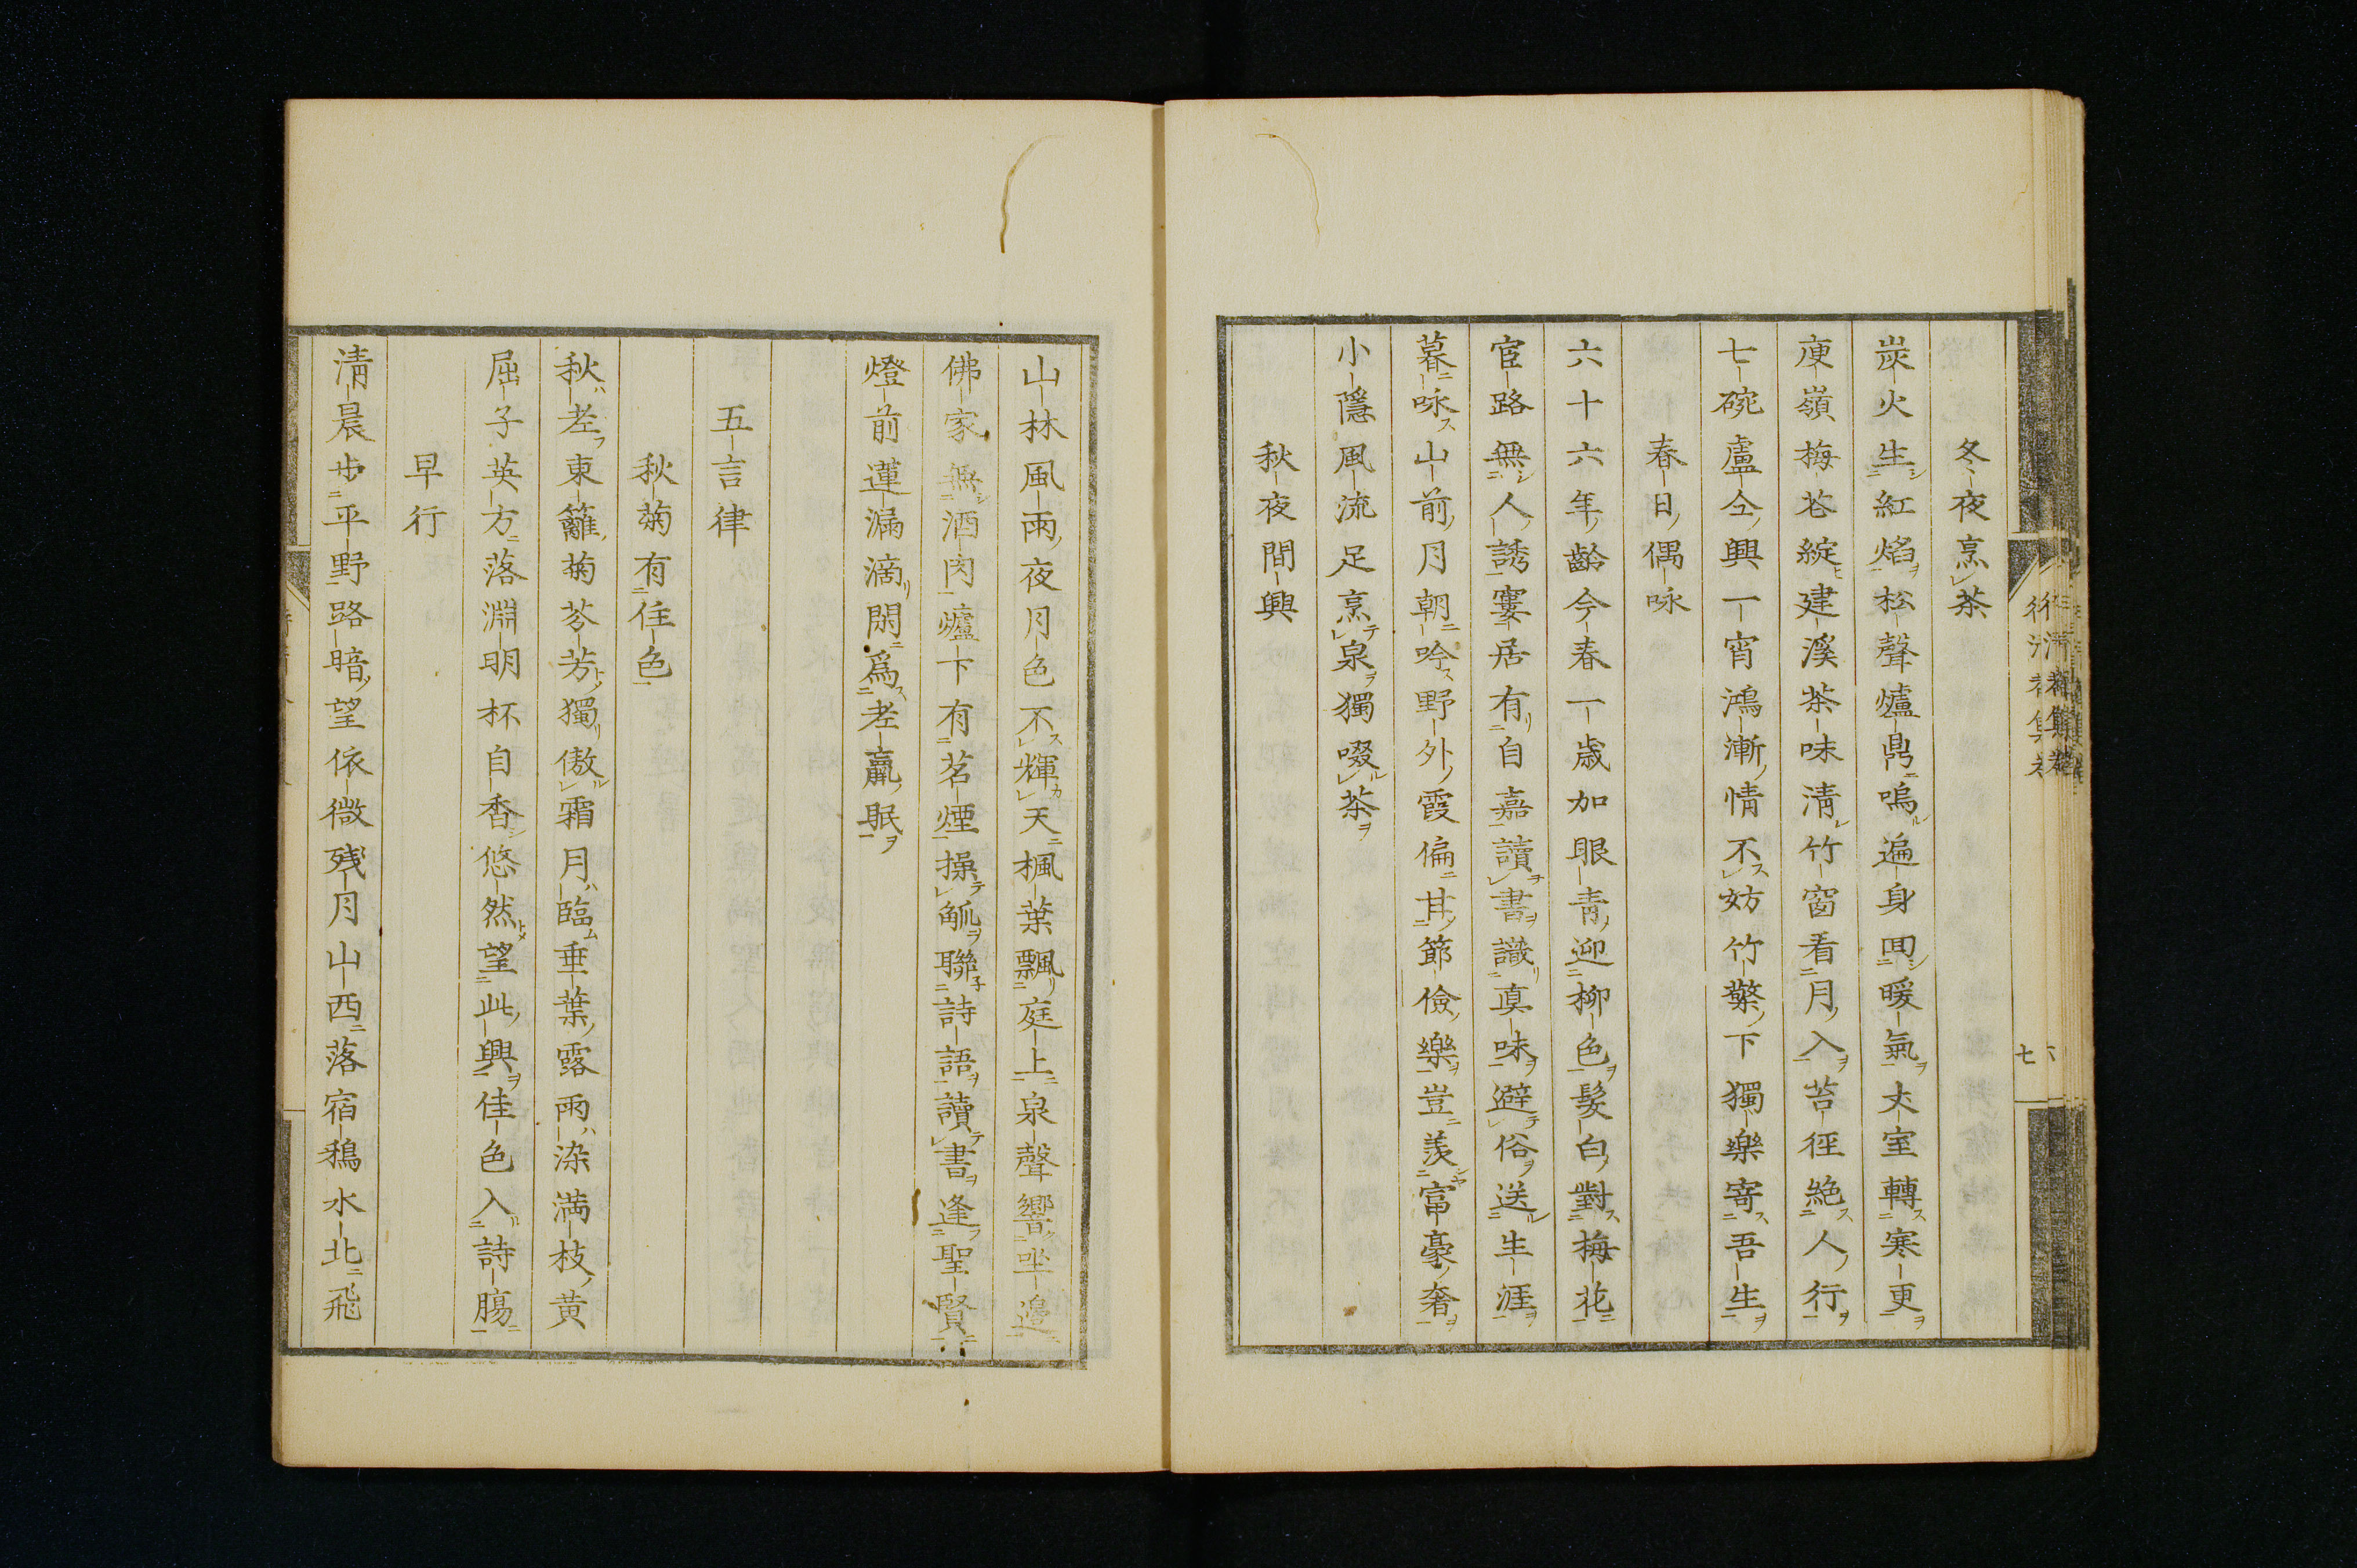 冬夜烹茶
炭火生紅焰松聲爐鼎鳴遍身回暖氣丈室轉寒更
庾嶺梅花綻建溪茶味清竹窗看月入苔徑絶人行
七碗盧仝興一宵鴻漸情不妨竹檠下獨樂寄吾生
春日偶咏
六十六年齡今春一歳加眼青迎柳色髮白對梅花
宦路無人誘寠居有自嘉讀書識真味避俗送生涯
暮咏山前月朝吟野外霞偏甘節儉樂豈羨富豪奢
小隱風流足烹泉獨啜茶
秋夜間興
七
山林風雨夜月色不輝天楓葉飄庭上泉聲響坐邉
佛家無酒肉爐下有茗煙操觚聯詩語讀書逢聖賢
燈前蓮漏滴閑爲老羸眠
五言律
秋菊有佳色
秋老東籬菊芬芳獨傲霜月臨垂葉露雨染満枝黄
屈子英方落淵明杯自香悠然望此興佳色入詩腸
早行
清晨歩平野路暗望依微残月山西落宿鴉水北飛